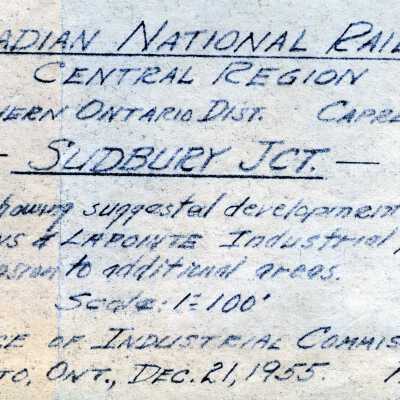 ADIAN NATIONAL RAIL
CENTRAL REGION
HERN ONTARIO DIST. CAPRE
— SUDBURY JCT. —
howing suggested development
NS & LAPOINTE Industrial
nsion to additional areas.
Scale: 1"=100'
CE OF INDUSTRIAL COMMISS
TO, ONT., DEC. 21, 1955.